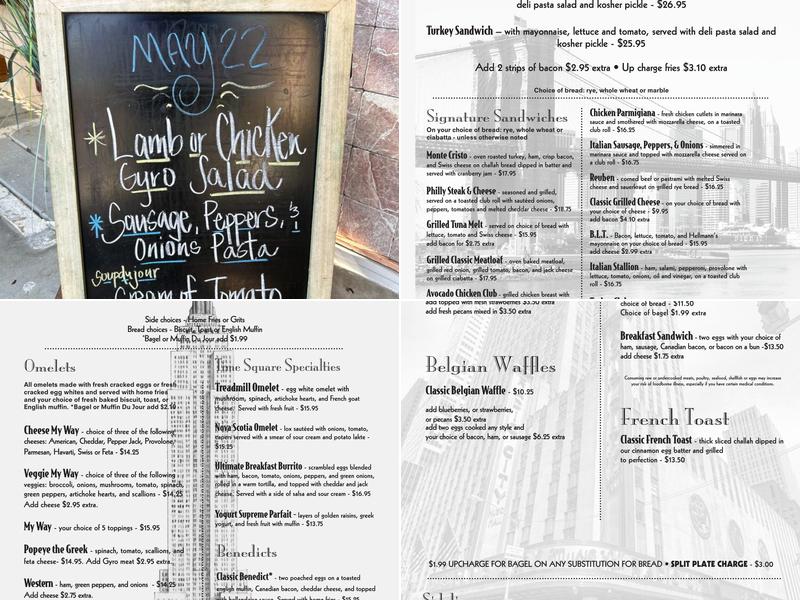 MAY 22
Lamb or Chicken
Gyro Salad
Sausage, Peppers, &
Onions Pasta
Soup du jour
Cream of Tomato
deli pasta salad and kosher pickle - $26.95
Turkey Sandwich – with mayonnaise, lettuce and tomato, served with deli pasta salad and
kosher pickle - $25.95
Add 2 strips of bacon $2.95 extra • Up charge fries $3.10 extra
Choice of bread: rye, whole wheat or marble
Signature Sandwiches
On your choice of bread: rye, whole wheat or
ciabatta - unless otherwise noted
Monte Cristo - oven roasted turkey, ham, crisp bacon,
and Swiss cheese on challah bread dipped in batter and
served with cranberry jam - $17.95
Philly Steak & Cheese - seasoned and grilled,
served on a toasted club roll with sautéed onions,
peppers, tomatoes and melted cheddar cheese - $18.75
Grilled Tuna Melt - served on choice of bread with
lettuce, tomato and Swiss cheese - $15.95
add bacon for $2.75 extra
Grilled Classic Meatloaf - oven baked meatloaf,
grilled red onion, grilled tomato, bacon, and jack cheese
on grilled ciabatta - $17.95
Avocado Chicken Club - grilled chicken breast with
Chicken Parmigiana - fresh chicken cutlets in marinara
sauce and smothered with mozzarella cheese, on a toasted
club roll - $16.25
Italian Sausage, Peppers, & Onions - simmered in
marinara sauce and topped with mozzarella cheese served on
a club roll - $16.75
Reuben - corned beef or pastrami with melted Swiss
cheese and sauerkraut on grilled rye bread - $16.25
Classic Grilled Cheese - on your choice of bread with
your choice of cheese - $9.95
add bacon $4.10 extra
B.L.T. - Bacon, lettuce, tomato, and Hellmann's
mayonnaise on your choice of bread - $15.95
add cheese $2.99 extra
Italian Stallion - ham, salami, pepperoni, provolone with
lettuce, tomato, onions, oil and vinegar, on a toasted club
roll - $16.75
Side choices - Home Fries or Grits
Bread choices - Biscuit, Toast or English Muffin
*Bagel or Muffin Du Jour add $1.99
Omelets
All omelets made with fresh cracked eggs or fresh
cracked egg whites and served with home fries
and your choice of fresh baked biscuit, toast, or
English muffin. *Bagel or Muffin Du Jour add $2.10
Cheese My Way - choice of three of the following
cheeses: American, Cheddar, Pepper Jack, Provolone,
Parmesan, Havarti, Swiss or Feta - $14.25
Veggie My Way - choice of three of the following
veggies: broccoli, onions, mushrooms, tomato, spinach,
green peppers, artichoke hearts, and scallions - $14.25
Add cheese $2.95 extra.
My Way - your choice of 5 toppings - $15.95
Popeye the Greek - spinach, tomato, scallions, and
feta cheese- $14.95. Add Gyro meat $2.95 extra.
Western - ham, green peppers, and onions - $14.25
Add cheese $2.75 extra.
Time Square Specialties
Treadmill Omelet - egg white omelet with
mushroom, spinach, artichoke hearts, and French goat
cheese. Served with fresh fruit - $15.95
Nova Scotia Omelet - lox sautéed with onions, tomato,
capers served with a smear of sour cream and potato latke -
$15.25
Ultimate Breakfast Burrito - scrambled eggs blended
with ham, bacon, tomato, onions, peppers, and green onions,
rolled in a warm tortilla, and topped with cheddar and jack
cheese. Served with a side of salsa and sour cream - $16.95
Yogurt Supreme Parfait - layers of golden raisins, greek
yogurt, and fresh fruit with muffin - $13.75
Benedicts
Classic Benedict* - two poached eggs on a toasted
english muffin, Canadian bacon, cheddar cheese, and topped
with hollandaise sauce. Served with home fries - $15.95
add topped with fresh strawberries $3.50 extra
add fresh pecans mixed in $3.50 extra
Belgian Waffles
Classic Belgian Waffle - $10.25
add blueberries, or strawberries,
or pecans $3.50 extra
add two eggs cooked any style and
your choice of bacon, ham, or sausage $6.25 extra
choice of bread - $11.50
Choice of bagel $1.99 extra
Breakfast Sandwich - two eggs with your choice of
ham, sausage, Canadian bacon, or bacon on a bun -$13.50
add cheese $1.75 extra
Consuming raw or undercooked meats, poultry, seafood, shellfish or eggs may increase
your risk of foodborne illness, especially if you have certain medical conditions.
French Toast
Classic French Toast - thick sliced challah dipped in
our cinnamon egg batter and grilled
to perfection - $13.50
$1.99 UPCHARGE FOR BAGEL ON ANY SUBSTITUTION FOR BREAD • SPLIT PLATE CHARGE - $3.00